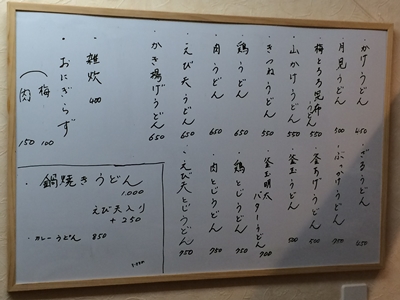 ・かけうどん 450
・月見うどん 500
・梅とろろ昆布うどん 550
・山かけうどん 550
・きつねうどん 550
・鶏うどん 650
・肉うどん 650
・えび天うどん 650
・かき揚げうどん 650
・雑炊 400
・おにぎらず
梅 100
肉 150
・ざるうどん 450
・ぶっかけうどん
・釜あげうどん 500
・釜玉うどん 500
・釜玉明太バターうどん 700
・鶏とじうどん 750
・肉とじうどん 750
・えび天とじうどん 750
・鍋焼きうどん
1.000
えび天入り
+250
・カレーうどん 850